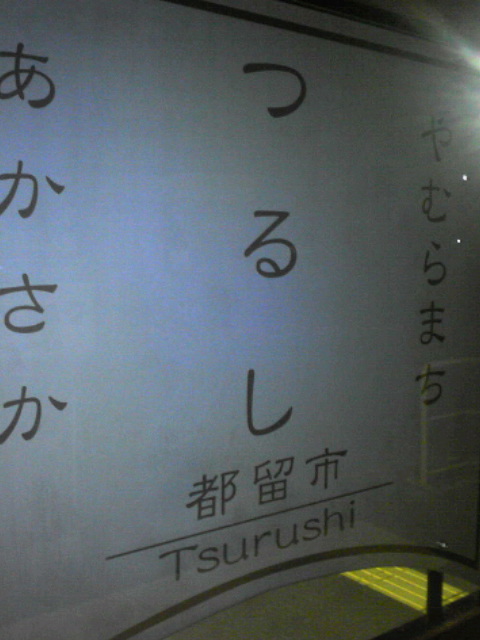 やむらまち
つるし
都留市
Tsurushi
あかさか